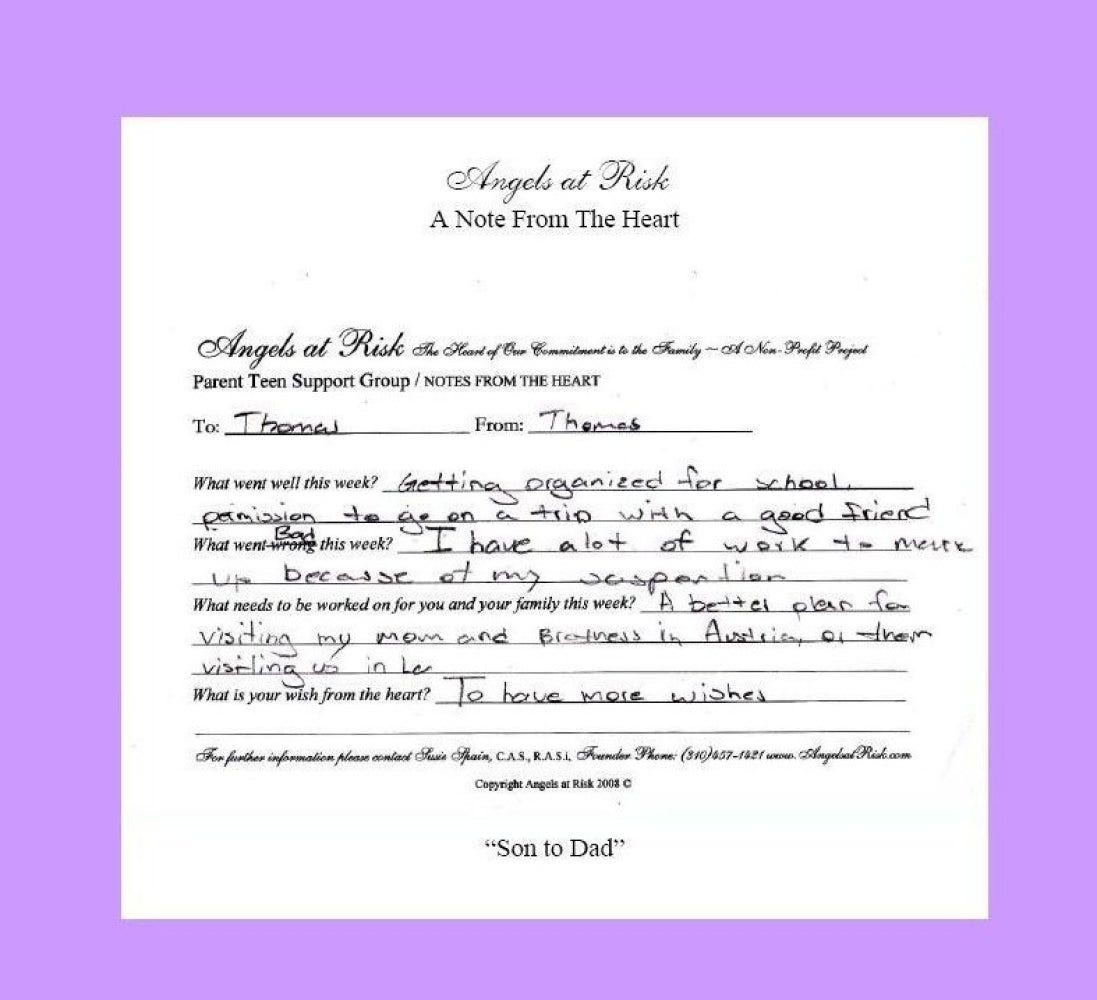 Angels at Risk
A Note From The Heart
Angels at Risk The Heart of Our Commitment is to the Family ~ A Non-Profit Project
Parent Teen Support Group / NOTES FROM THE HEART
To: Thomas From: Thomas
What went well this week? Getting organized for school,
permission to go on a trip with a good friend
What went wrong Bad this week? I have alot of work to
up becasse of my
What needs to be worked on for you and your family this week? A better plan for
visiting my mom and in Austria, or them
visiting us in La
What is your wish from the heart? To have more wishes
For further information please contact Susie Spain, C.A.S., R.A.S.i, Founder Phone: (310)457-1421 www. AngelsatRisk.com
Copyright Angels at Risk 2008 ©
“Son to Dad”